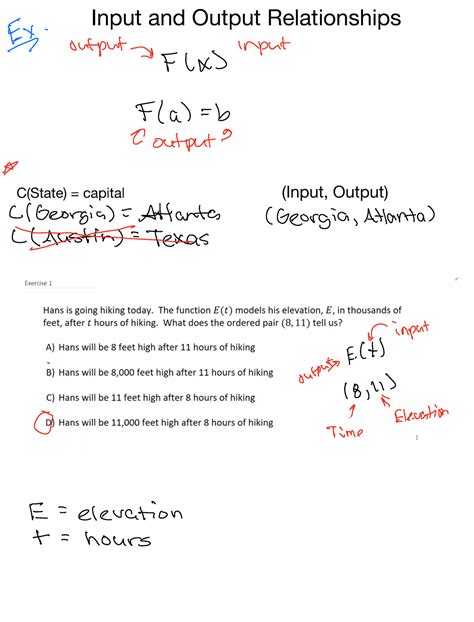 Ex.
Input and Output Relationships
output → F(x) input
F(a) = b
output
C(State) = capital
(Input, Output)
C(Georgia) = Atlanta
(Georgia, Atlanta)
C(Austin) = Texas
Exercise 1
Hans is going hiking today. The function E(t) models his elevation, E, in thousands of
feet, after t hours of hiking. What does the ordered pair (8, 11) tell us?
A) Hans will be 8 feet high after 11 hours of hiking
B) Hans will be 8,000 feet high after 11 hours of hiking
C) Hans will be 11 feet high after 8 hours of hiking
D) Hans will be 11,000 feet high after 8 hours of hiking
input
output → E(t)
(8, 11)
Time
Elevation
E = elevation
t = hours